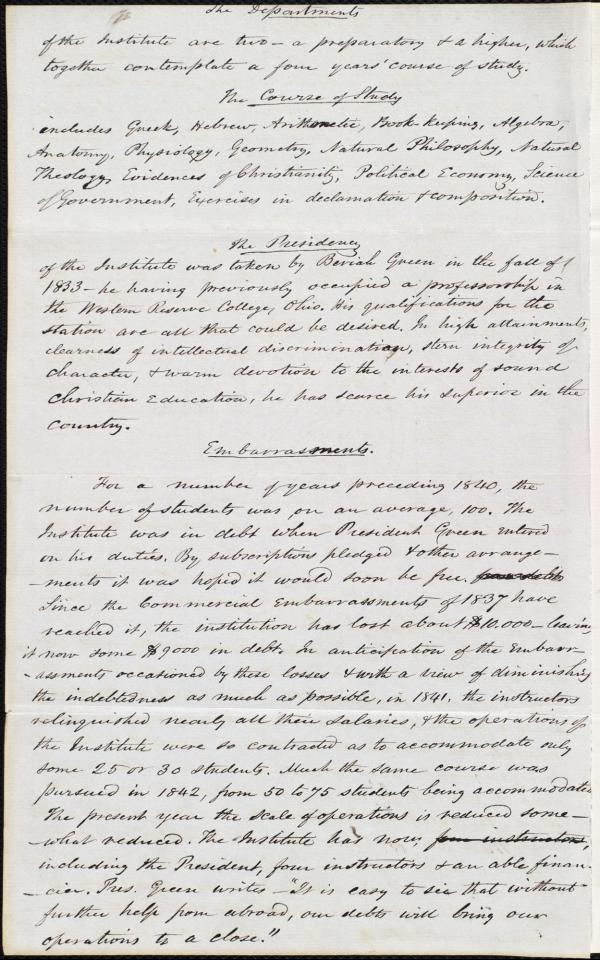 The Departments
of the Institute are two – a preparatory & a higher, which
together contemplate a four years' course of study.
The Course of Study
includes Greek, Hebrew, Arithmetic, Book-keeping, Algebra,
Anatomy, Physiology, Geometry, Natural Philosophy, Natural
Theology, Evidences of Christianity, Political Economy, Science
of Government, Exercises in declamation & composition.
The Presidency
of the Institute was taken by Beriah Green in the fall of
1833 – he having previously occupied a professorship in
the Western Reserve College, Ohio. His qualifications for the
station are all that could be desired. In high attainments,
clearness of intellectual discrimination, stern integrity of
character, & warm devotion to the interests of sound
Christian Education, he has scarce his superior in the
country.
Embarrassments.
For a number of years preceding 1840, the
number of students was on an average, 100. The
Institute was in debt when President Green entered
on his duties. By subscriptions pledged & other arrange-
-ments it was hoped it would soon be free.
Since the Commercial Embarrassments of 1837 have
reached it, the institution has lost about $10.000 – leaving
it now some $9000 in debt. In anticipation of the Embarr-
-assments occasioned by these losses & with a view of diminishing
the indebtedness as much as possible, in 1841. the instructors
relinquished nearly all their salaries, & the operations of
the Institute were so contracted as to accommodate only
some 25 or 30 students. Much the same course was
pursued in 1842, from 50 to 75 students being accommodated
The present year the scale of operations is reduced some-
-what reduced. The Institute has now, four instructors,
including the President, four instructors & an able finan-
-cier. Pres. Green writes – It is easy to see that without
further help from abroad, our debts will bring our
operations to a close."